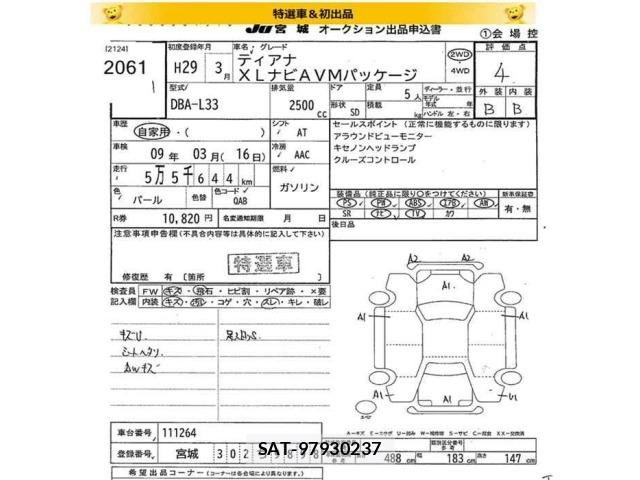 特選車&初出品
JU宮城 オークション出品申込書
①会場控
[2124]
2061
初度登録年月
H29年 3月
車名・グレード
ティアナ
XLナビAVMパッケージ
2WD
・
4WD
評価点
4
型式
DBA-L33
排気量
2500 cc
ドア 形状 SD
定員 5人
積載 kg
ディーラー・並行
モデル年式 年式
ハンドル 左・右
外装 内装
B B
車歴
自家用・( )
シフト AT
車検
09年 03月(16日)
冷房 AAC
走行
5万5千644km
燃料
ガソリン
色 パール
色替
色コード QAB
セールスポイント (正常に機能するものに限ります)
アラウンドビューモニター
キセノンヘッドランプ
クルーズコントロール
装備品 (純正品に限り○をつけてください)
新車保証書
PS PW ABS エアB AW
SR ナビ TV カワ
有・無
R券 10,820円
名変通知期限 月 日
後日品
注意事項申告欄(不具合内容等は具体的に記入して下さい)
特選車
修復歴 有 [箇所 ]
検査員 FW キズ・飛石・ヒビ割・リペア跡・×要
記入欄 内装 キズ・汚れ・コゲ・穴・スレ・キレ・破レ
キズU
シートヘタリ
AWキズ
A2 A2
A1
A1 A1
A1
A2 U1
A-キズ E-エクボ U-凹み W-補修跡 S-サビ C-腐食 XX-交換済
車台番号 111264
登録番号 宮城 302
SAT-97930237
488cm
幅 183cm
高さ 147cm
希望出品コーナー (コーナーは各会場により異なります)